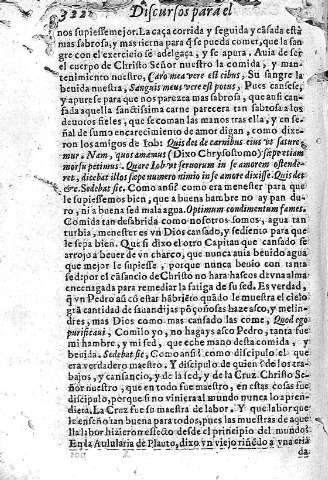 322 Discursos para el
nos supiesse mejor. La caça corrida y seguida y cãsada està
mas sabrosa, y mas tierna para q̃ se pueda comer, que la san-
gre con el exercicio se adelgaça, y se apura. Auia de ser
el cuerpo de Christo Señor nuestro la comida, y man-
tenimiento nuestro, Caro mea vere est cibus, Su sangre la
beuida nuestra, Sanguis meus vere est potus, Pues cansese,
y apurese para que nos parezca mas sabrosa, que assi can-
sada aquella sanctissima carne parecera tan sabrosa a los
deuotos fieles, que se coman las manos tras ella, y en se-
ñal de sumo encarecimiento de amor digan, como dixe-
ron los amigos de Iob: Quis det de carnibus eius vt sature-
mur. Nam, quos amamus (Dixo Chrysostomo) sæpe etiam
morsu petimus. Quare Iob vt seruorum in se amorem ostende-
ret, dicebat illos sæpe numero nimio in se amore dixisse. Quis det
&c. Sedebat sic. Como ansi? como era menester para que
le supiessemos bien, que a buena hambre no ay pan du-
ro, ni a buena sed mala agua. Optimum condimentum fames.
Comida tan desabrida como nosotros somos, agua tan
turbia, menester es vn Dios cansado, y sediento para que
le sepa bien. Que si dixo el otro Capitan que cansado se
arrojo a beuer de vn charco, que nunca auia beuido agua
que mejor le supiesse, porque nunca beuio con tanta
sed; por el cãsancio de Christo no hara hascos de vna alma
encenagada para remediar la fatiga de su sed. Es verdad,
q̃ vn Pedro aũ cõ estar hãbriẽto quãdo le muestra el cielo
grã cantidad de sauandijas põçoñosas haze asco, y melin-
dres, mas Dios como mas cansado las come, Quod ego
purificaui, Comilo yo, no hagays asco Pedro, tanta fue
mi hambre, y mi sed, que eche mano desta comida, y
beuida. Sedebat sic, Como ansi? como discipulo el que
era verdadero maestro. Y discipulo de quien? de los tra-
bajos, y cansancio, y de la sed, y de la Cruz Christo Se-
ñor nuestro, que en todo fue maestro, en estas cosas fue
discipulo, porque si no viniera al mundo nunca lo apren-
diera. La Cruz fue su maestra de labor. Y que labor que
le enseño tan buena para todos, pues las muestras de aque-
lla labor hizierõ resecto desde el principio del mundo.
En la Aulularia de Plauto, dixo vn viejo riñẽdo a vna cria
da